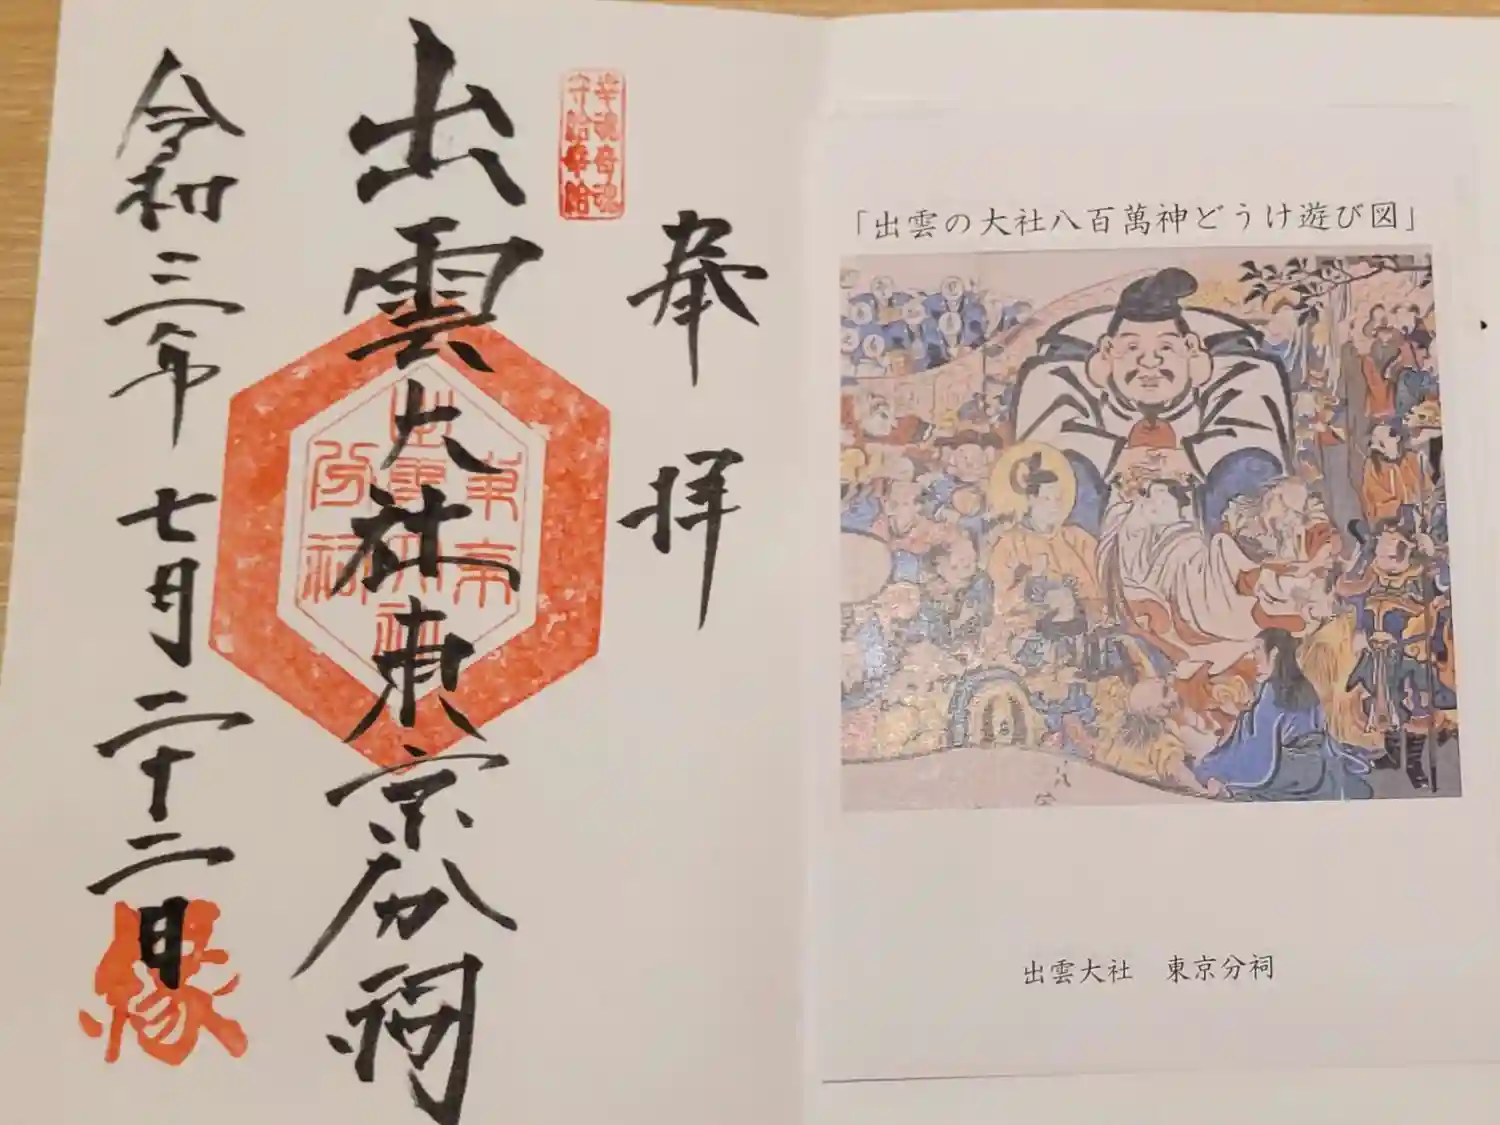 奉拝
幸魂奇魂
守給幸給
出雲大社東京分祠
東京
出雲大社
分祠
令和三年七月二十二日
縁
「出雲の大社八百萬神どうけ遊び図」
出雲大社 東京分祠